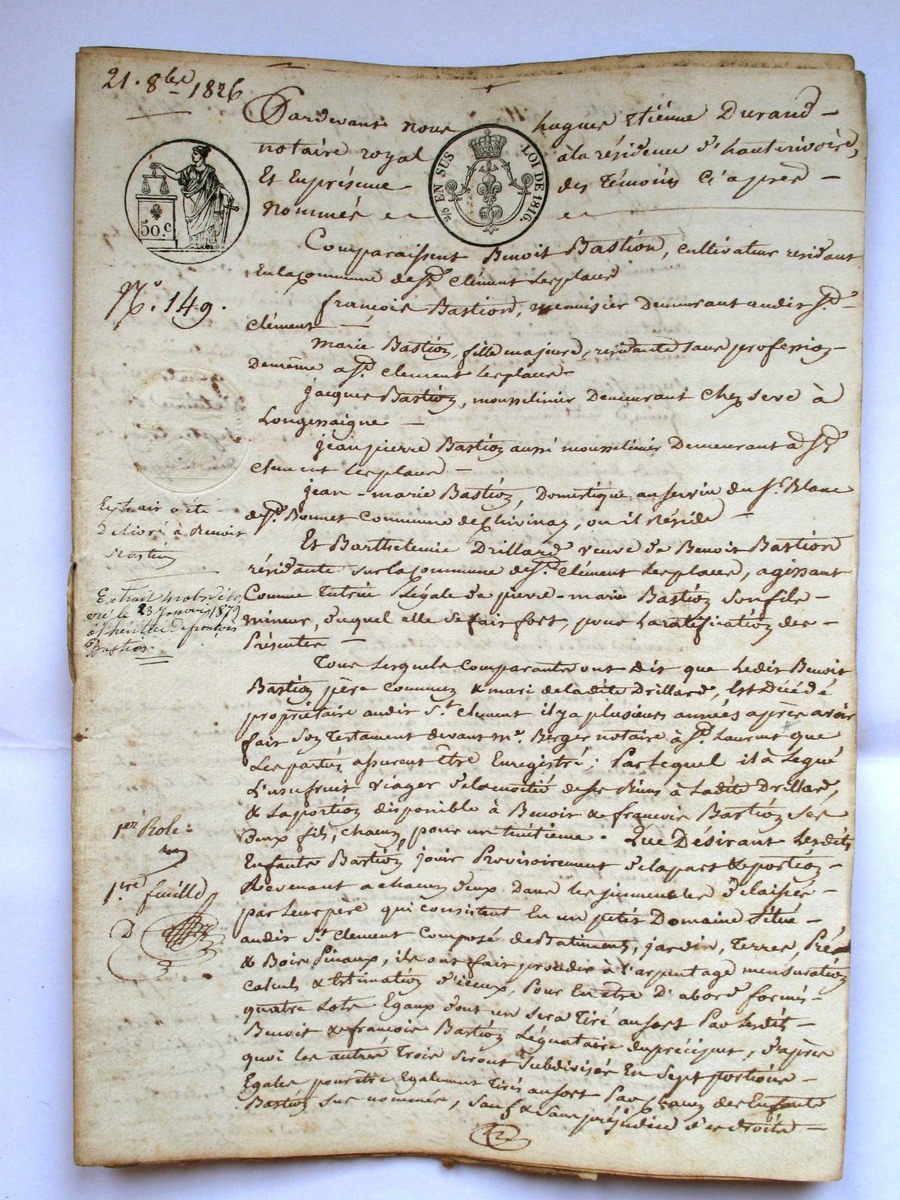 21. 8bre 1826
Pardevant nous hugues Etiénne Durand
notaire royal à la résidence d'hauterivoire,
Et En présence des témoins Ci après
nommés
50.C
EN SUS LOI DE 1816.
Comparaissent Benoit Bastion, cultivateur résidant
En la commune de St. Clément les places
N°. 149.
francois Bastion, menuisier Demeurant audit St.
Clément
Marie Bastion, fille majeure, résidante sans profession
De même a St. Clement les places
Jacques Bastion, mousselinier Demeurant Chez Sere à
Longessaigne
Jean pierre Bastion aussi mousselinier Demeurant à St.
Clement les places
Jean-marie Bastion, Domestique au service du Sr. Blanc
de St. Bonnet Commune de Chivinay, ou il Réside
Extrait a été
Délivré à Benoit
Bastion
Et Barthelemie Drillard veuve de Benoit Bastion
résidante sur la commune de St. Clément les places, agissant
Comme tutrice Légale de pierre-marie Bastion son fils
mineur, duquel elle se fait fort, pour la ratification des
Présentes
Extrait
le 23 Janvier 1879
à l'héritier de francois
Bastion
Tous Lesquels Comparants ont dit que Ledit Benoit
Bastion père Commun & mari de la dite Drillard, Est Décédé
propriétaire audit St. Clement il y a plusieurs années après avoir
fait son testament devant Me. Berger notaire à St. Laurent que
Les parties assurent être Enregistré; Par lequel il a Légué
L'usufruit viager de la moitié de ses Biens à Ladite Drillard,
& La portion disponible à Benoit & francois Bastion ses
deux fils, chacun pour un huitieme. Que Désirant Lesdits
Enfants Bastion jouir Provisoirement de la part & portion
Revenant a chacun d'eux Dans les immeubles Délaissés
par leur père qui consistent En un petit Domaine Situé
audit St. Clement Composé de Batiments, jardin, Terres, Prés
& Bois Pinaux, ils ont fait procéder à l'arpentage mensuration
calculs & Estimation d'iceux, Pour En être D'abord formés
quatre Lots Egaux dont un sera Tiré au sort Par Lesdits
Benoit & francois Bastion Légataires du préciput, d'après
quoi les autres Trois seront subdivisés En sept portions
Egales pour être Egalement Tirés au sort Par Chacun des Enfants
Bastion sus nommés, sauf & sans préjudice des droits
1er Role
1re. feuille